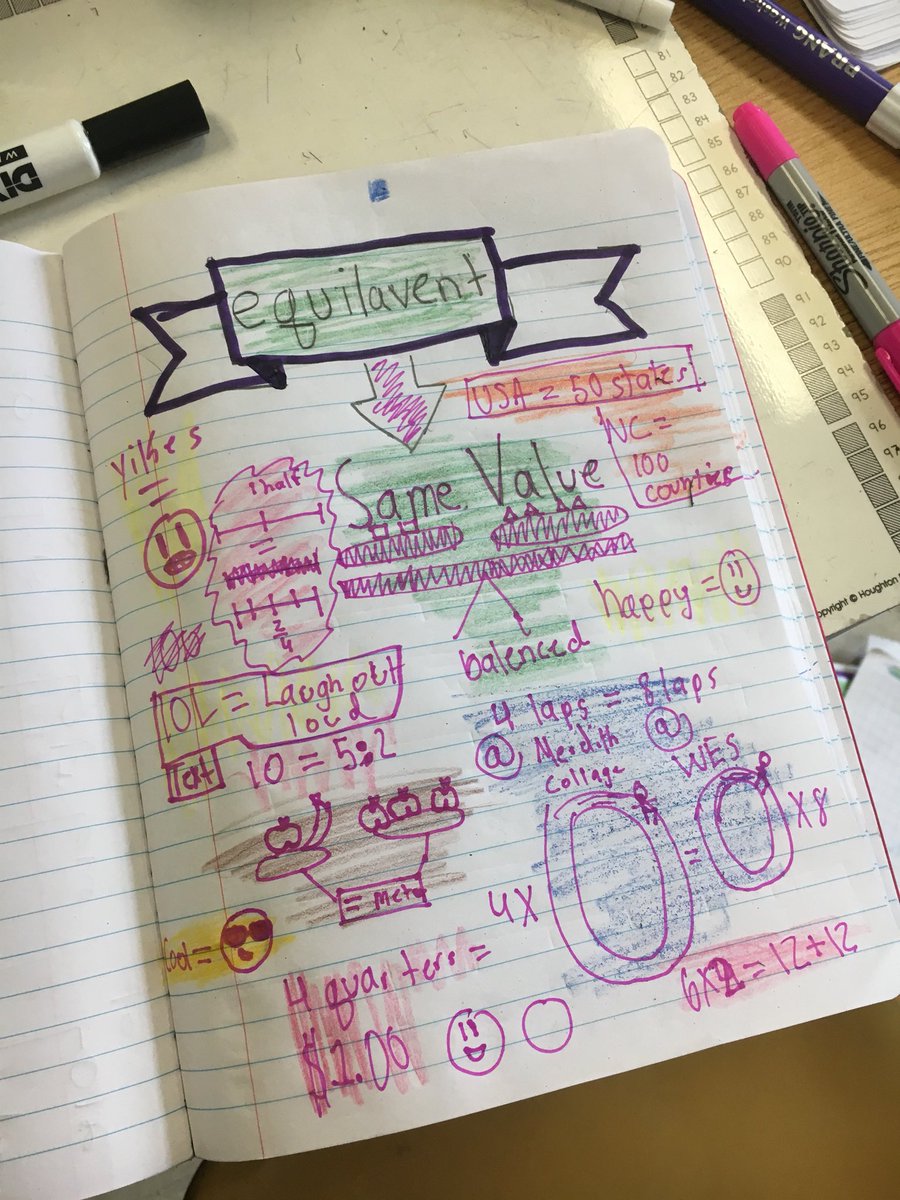 equilavent
USA = 50 states
NC =
100
counties
yikes
=
1 half
=
2/4
Same Value
balenced
happy =
LOL = Laugh out
loud
Text
10 = 5:2
4 laps = 8 laps
@ Meridith @
Collage WES
4X = X8
= meter
Cool =
4 quarters =
$1.00
6X2 = 12+12
DIY
PRANG
Sharpie
81
82
83
84
85
86
87
88
89
90
91
92
93
94
95
96
97
opyright © Houghton